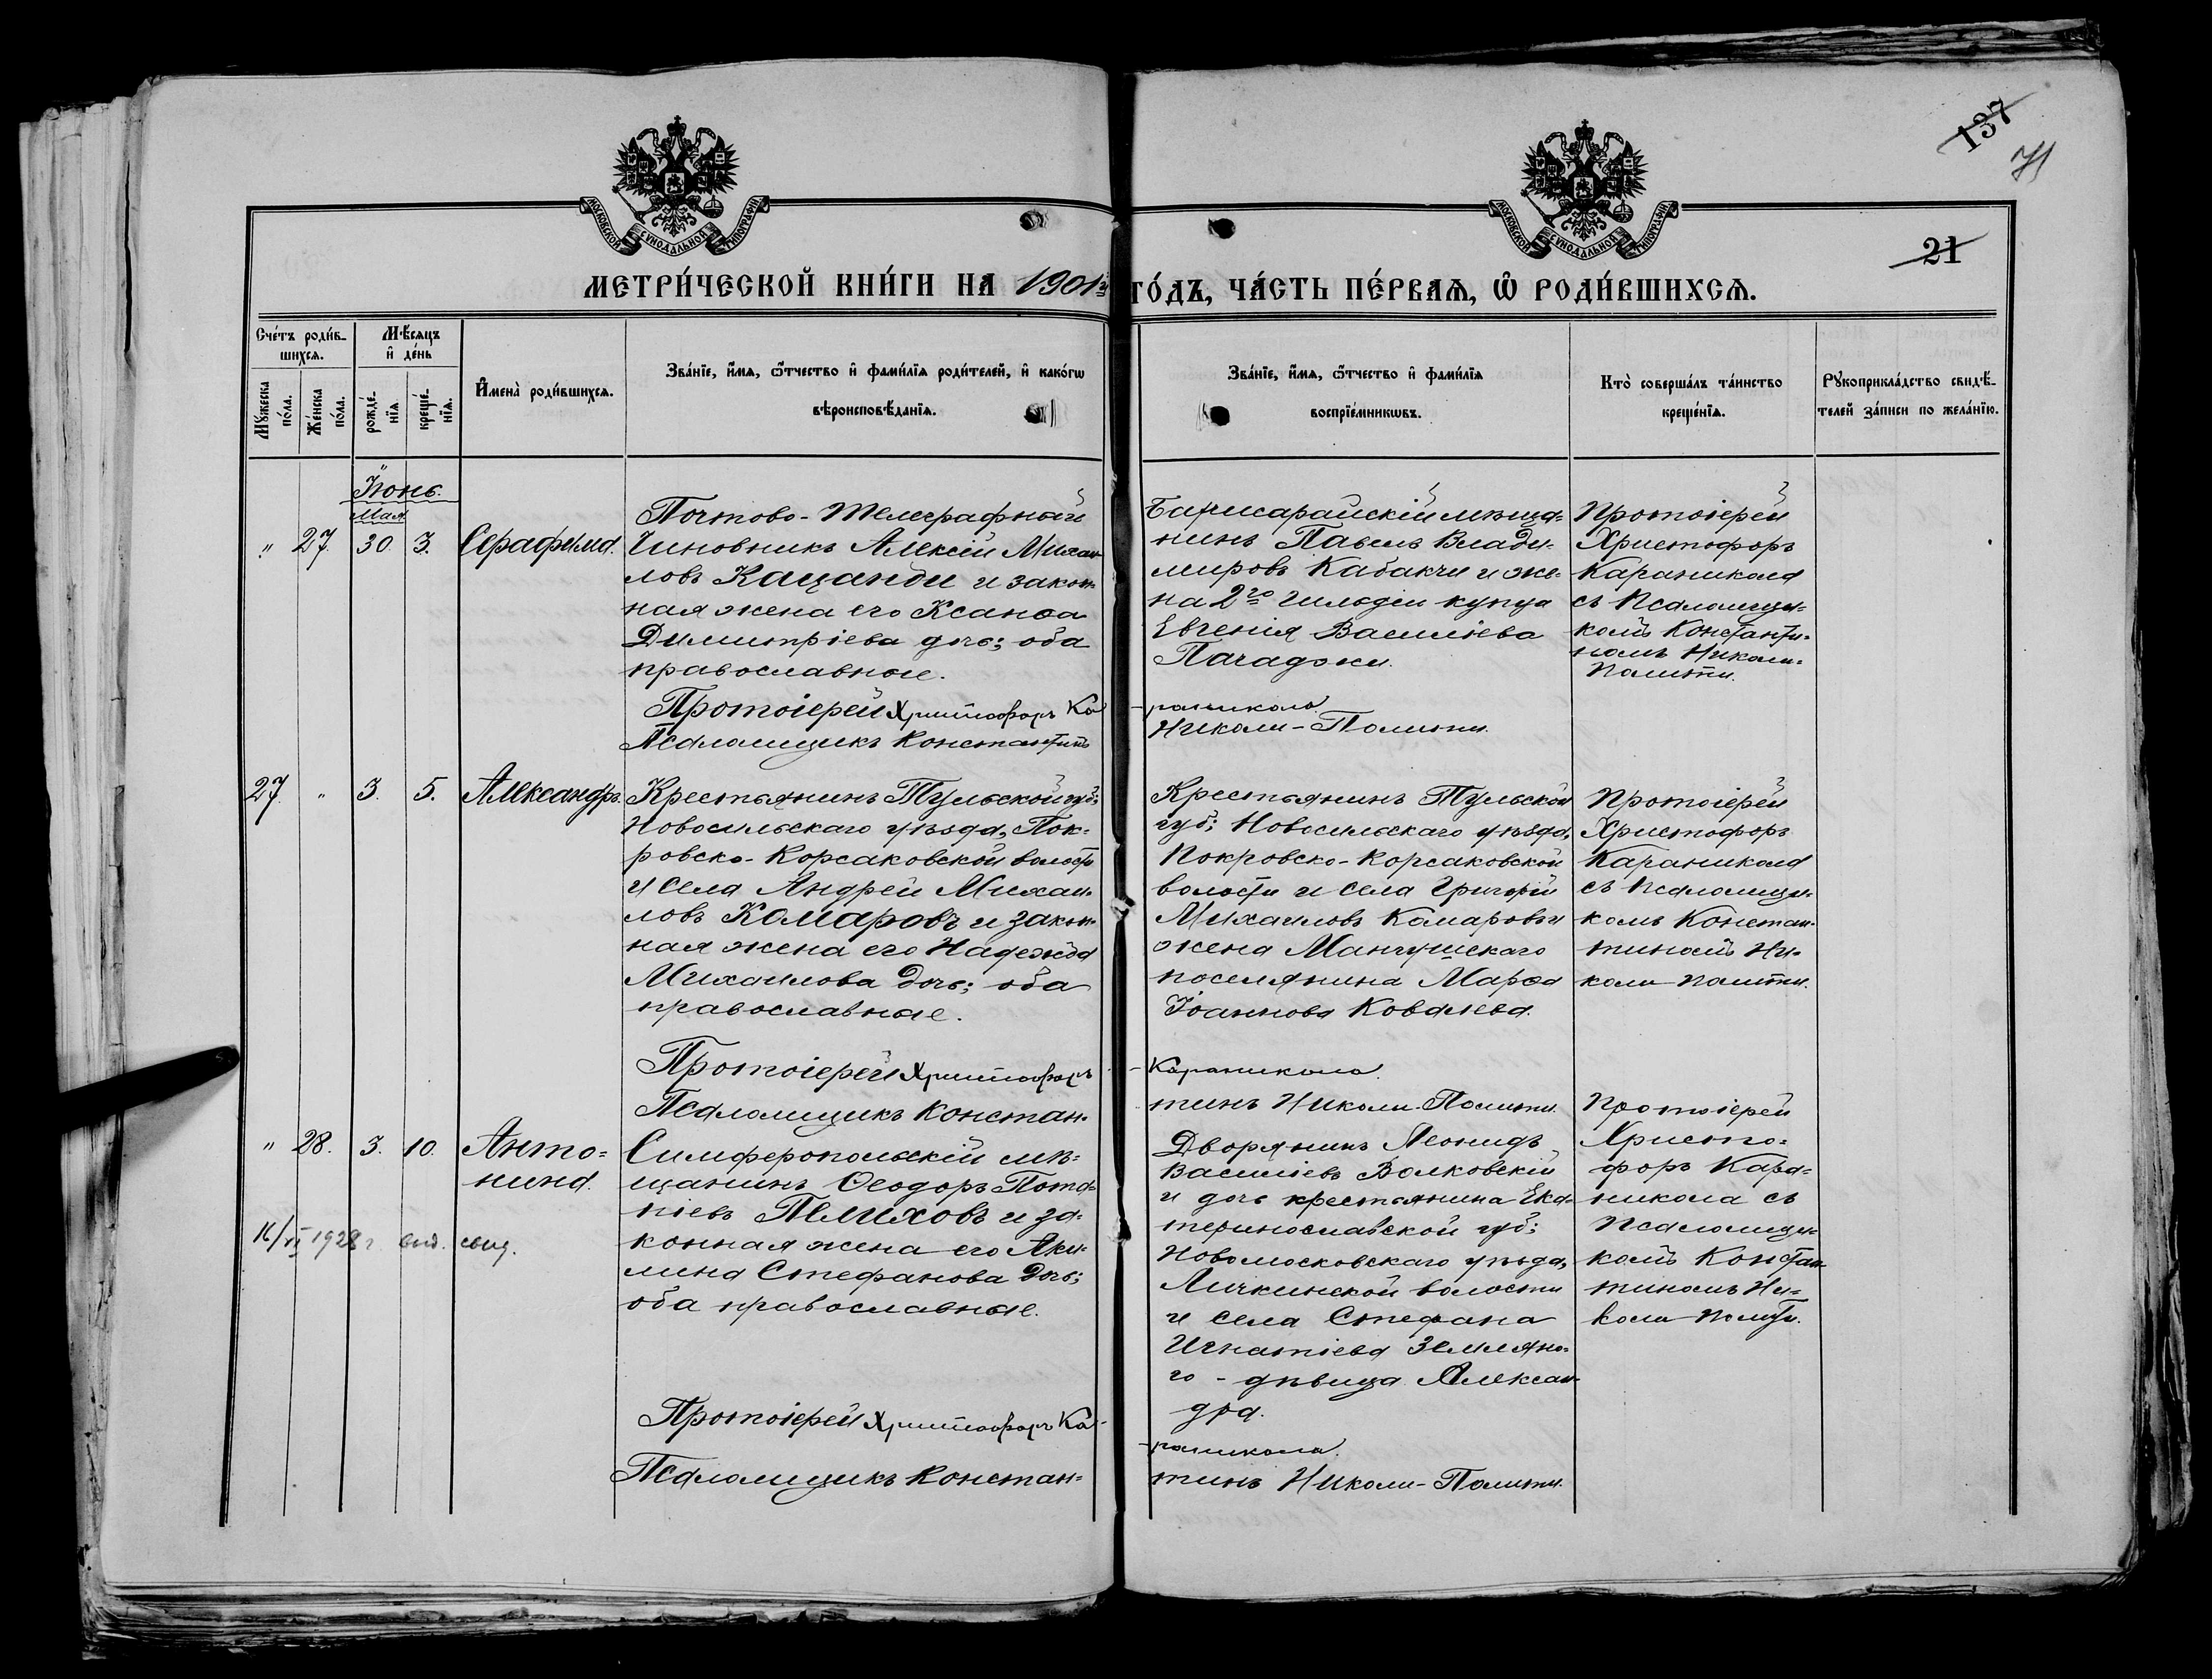 137
71
21
МОСКОВСКОЙ СѴНОДАЛЬНОЙ ТИПОГРАФІИ
МОСКОВСКОЙ СѴНОДАЛЬНОЙ ТИПОГРАФІИ
МЕТРИ́ЧЕСКОЙ КНИ́ГИ НА 1901й ГО́ДЪ, ЧА́СТЬ ПЕ́РВАѦ, Ѡ҆ РОДИ́ВШИХСѦ.
Сче́тъ роди́в-
шихсѧ.
Мꙋ́жеска по́ла.
Же́нска по́ла.
Мѣ́сѧцъ
и҆ де́нь
рожде́-
нїѧ.
креще́-
нїѧ.
И҆мена̀ роди́вшихсѧ.
Зва́нїе, и҆́мѧ, ѻ҆́тчество и҆ фами́лїѧ роди́телей, и҆ како́гѡ
вѣроисповѣ́данїѧ.
Зва́нїе, и҆́мѧ, ѻ҆́тчество и҆ фами́лїѧ
воспрїе́мникѡвъ.
Кто̀ соверша́лъ та́инство
креще́нїѧ.
Рꙋкоприкла́дство свидѣ́-
телей за́писи по жела́нїю.
Іюнь.
Мая
" 27. 30. 3. Серафима.
Почтово-Телеграфный
Чиновникъ Алексій Михаи-
ловъ Кацанди и закон-
ная жена его Ксанѳа
Димитріева дочь; оба
православные.
Протоіерей Христофоръ Ка-
Псаломщикъ Константинъ
Бахчисарайскій мѣща-
нинъ Павелъ Влади-
міровъ Кабакчи и же-
на 2го Гильдіи купца
Евгенія Василіева
Пачаджи.
-раникола
Николи-Полити.
Протоіерей
Христофоръ
Караникола
съ Псаломщи-
комъ Константи-
номъ Николи-
Полити.
27. " 3. 5. Александръ.
Крестьянинъ Тульской губ;
Новосильскаго уѣзда, Пок-
ровско-Корсаковской волости
и села Андрей Михаи-
ловъ Комаровъ и закон-
ная жена его Надежда
Михаилова дочь; оба
православные.
Протоіерей Христофоръ
Псаломщикъ Констан-
Крестьянинъ Тульской
губ; Новосильскаго уѣзда,
Покровско-Корсаковской
волости и села Григорій
Михаиловъ Комаровъ и
жена Мангушскаго
поселянина Марѳа
Іоаннова Ковалева.
-Караникола.
тинъ Николи-Полити.
Протоіерей
Христофоръ
Караникола
съ Псаломщи-
комъ Констан-
тиномъ Ни-
коли Полити.
" 28. 3. 10. Анто-
нина.
16/VI 1928 г. выд. свид.
Симферопольскій мѣ-
щанинъ Ѳеодоръ Пота-
піевъ Пелиховъ и за-
конная жена его Аки-
лина Стефанова дочь;
оба православные.
Протоіерей Христофоръ Ка-
Псаломщикъ Констан-
Дворянинъ Леонидъ
Василіевъ Волковскій
и дочь крестьянина Ека-
теринославской губ;
Новомосковскаго уѣзда,
Личкинской волости
и села Стефана
Игнатіева Землено-
го - дѣвица Алексан-
дра.
-раникола.
тинъ Николи-Полити.
Протоіерей
Христо-
форъ Кара-
никола съ
Псаломщи-
комъ Констан-
тиномъ Ни-
коли Полити.